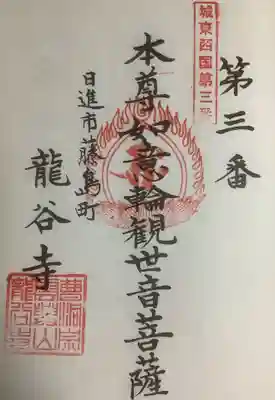 城東西国第三番
第三番
本尊如意輪観世音菩薩
日進市藤島町
龍谷寺
曹洞宗
龍谷寺